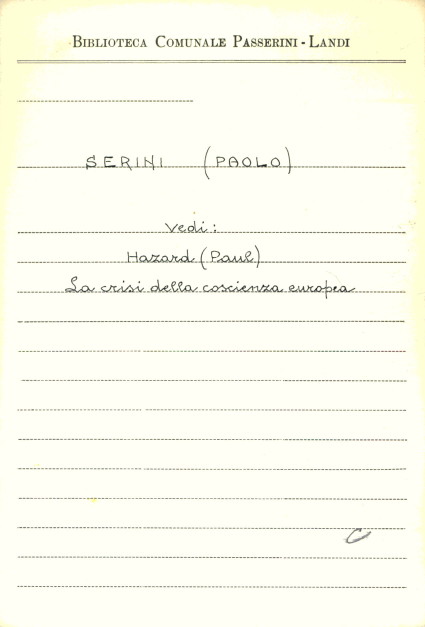 BIBLIOTECA COMUNALE PASSERINI - LANDI
SERINI (PAOLO)
Vedi:
Hazard (Paul)
La crisi della coscienza europea
C